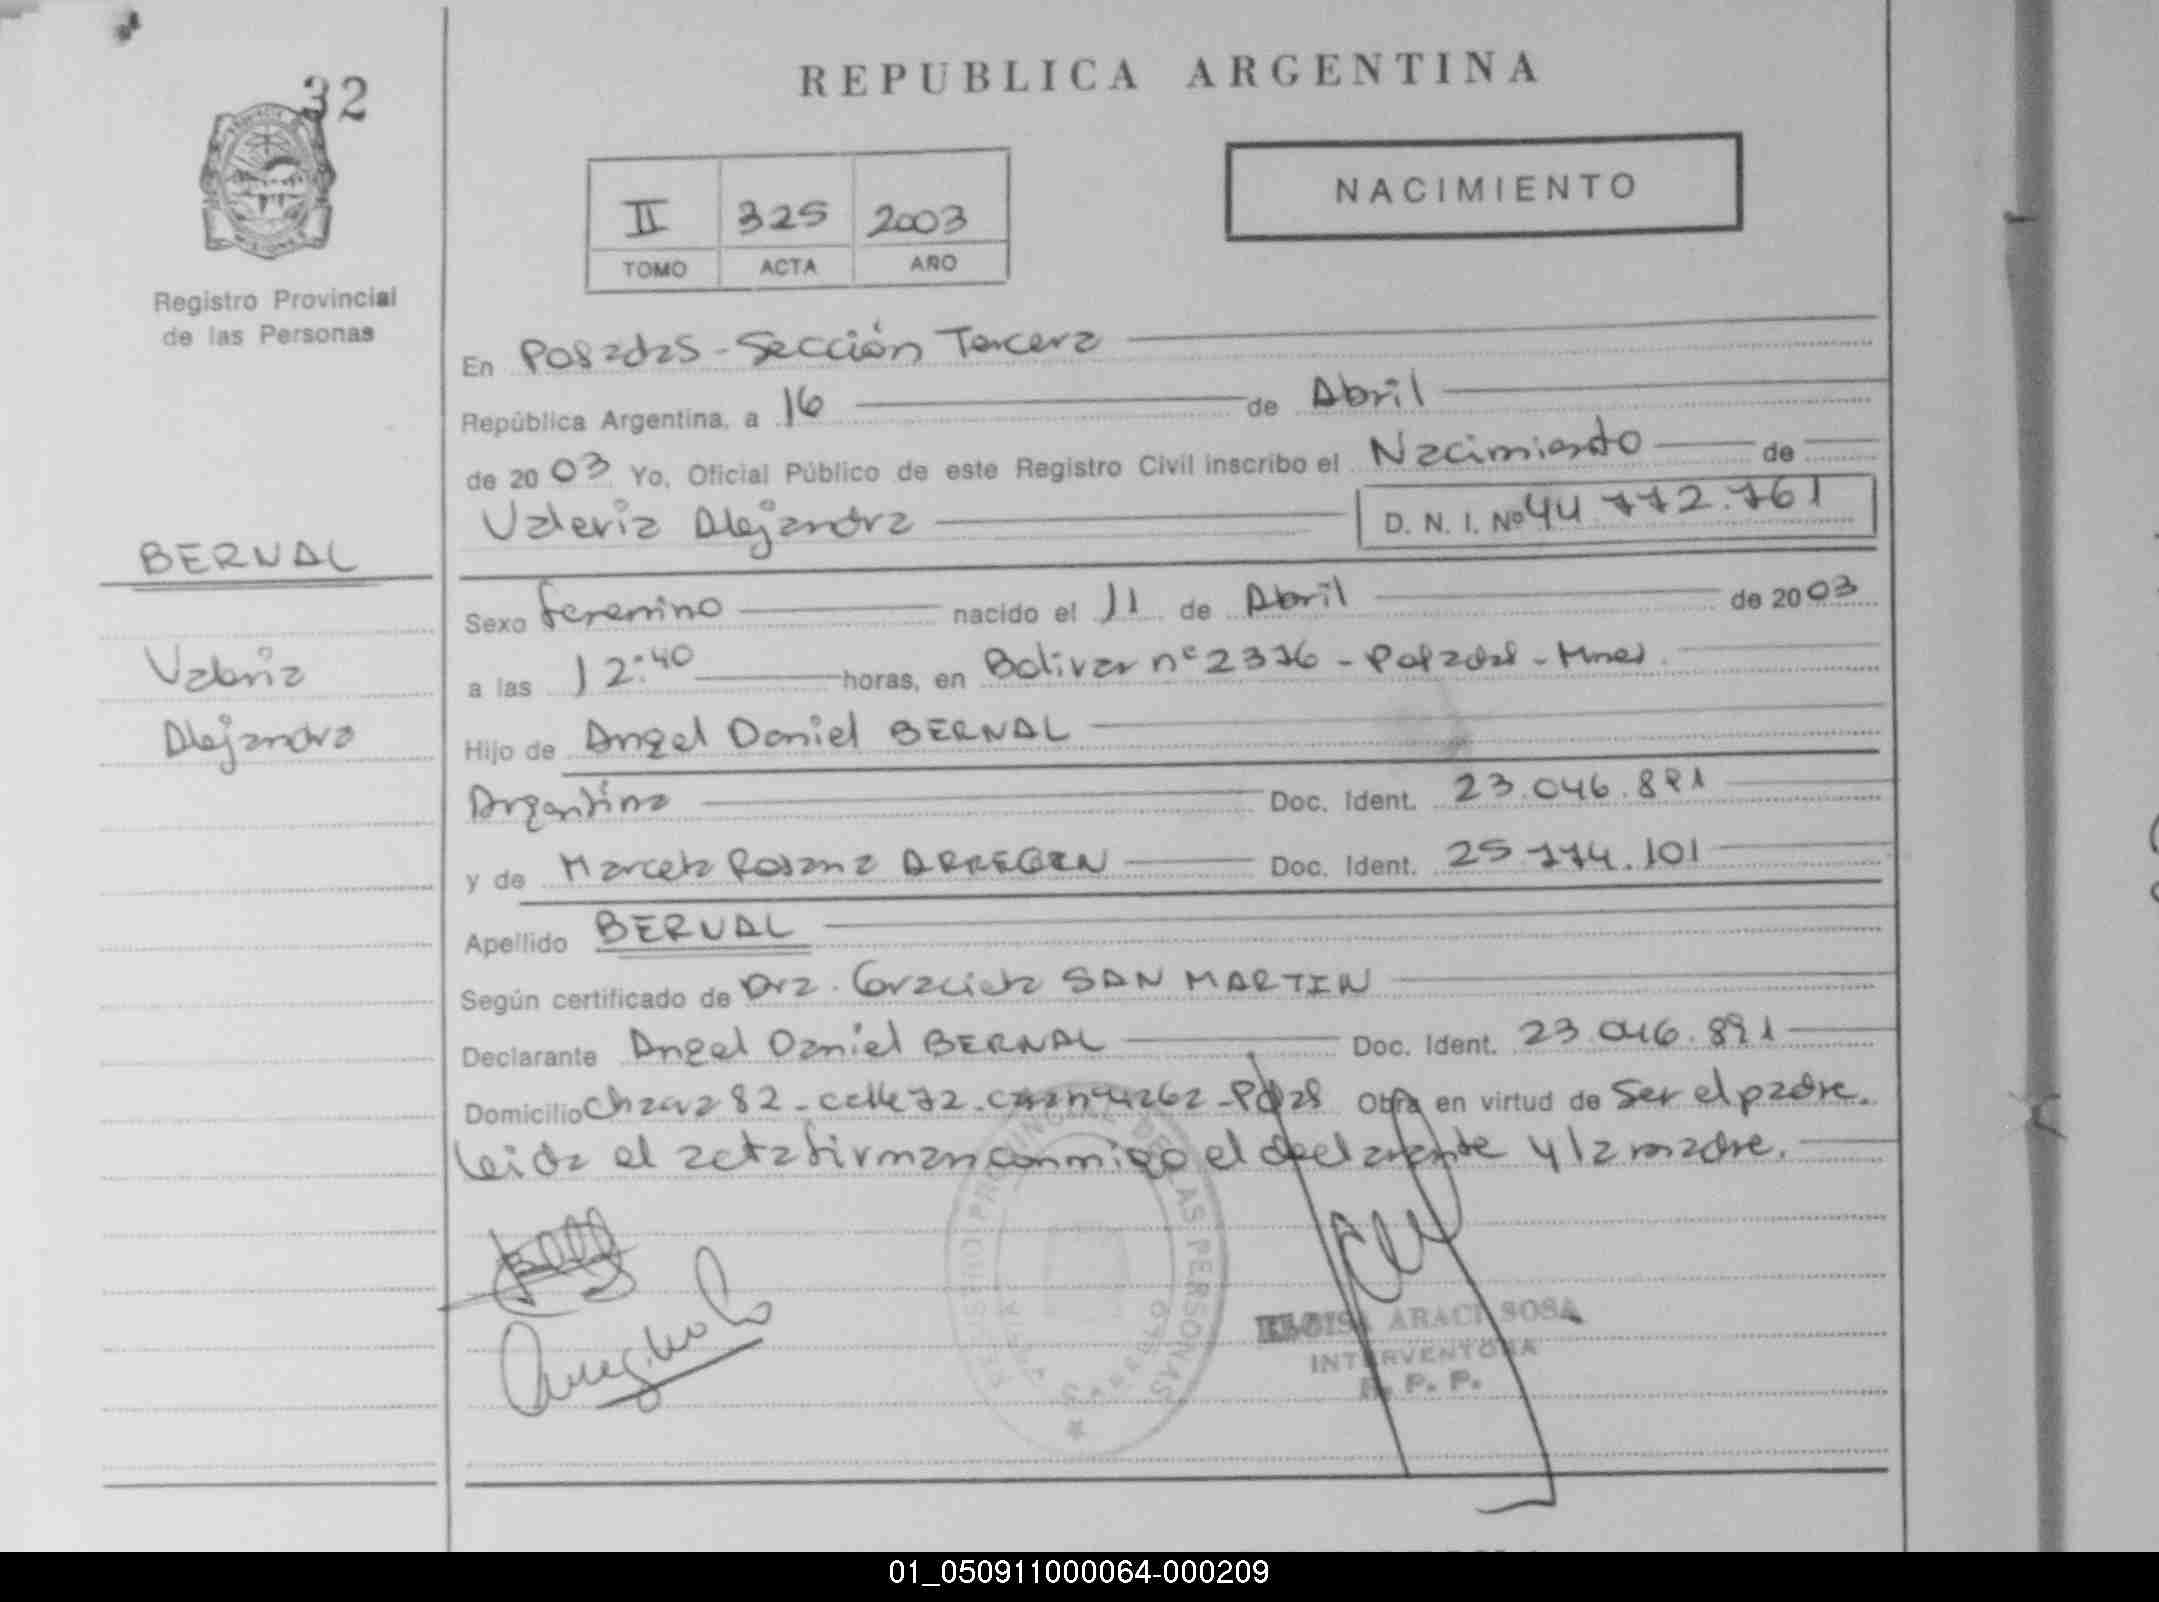 32
REPUBLICA ARGENTINA
NACIMIENTO
II 325 2003
TOMO ACTA AÑO
Registro Provincial
de las Personas
En Posadas - Sección Tercera
República Argentina, a 16 de Abril
de 2003 Yo, Oficial Público de este Registro Civil inscribo el Nacimiento de
Valeria Alejandra D. N. I. Nº 44 772.761
BERNAL
Sexo femenino nacido el 11 de Abril de 2003
Valeria
a las 12:40 horas, en Bolivar nº 2376 - Posadas - Mnes.
Alejandra
Hijo de Angel Daniel BERNAL
Argentina Doc. Ident. 23.046.891
y de Marcela Rosana Doc. Ident. 25 774.101
Apellido BERNAL
Según certificado de Dra. Graciela SAN MARTIN
Declarante Angel Daniel BERNAL Doc. Ident. 23.046.891
Domicilio Chacra 82 - calle 72 - Pdas Obra en virtud de Ser el padre.
Leida el acta firman conmigo el declarante y la madre.
REGISTRO PROVINCIAL DE LAS PERSONAS
ARACI SOSA
INTERVENTORA
R. P. P.
01_050911000064-000209